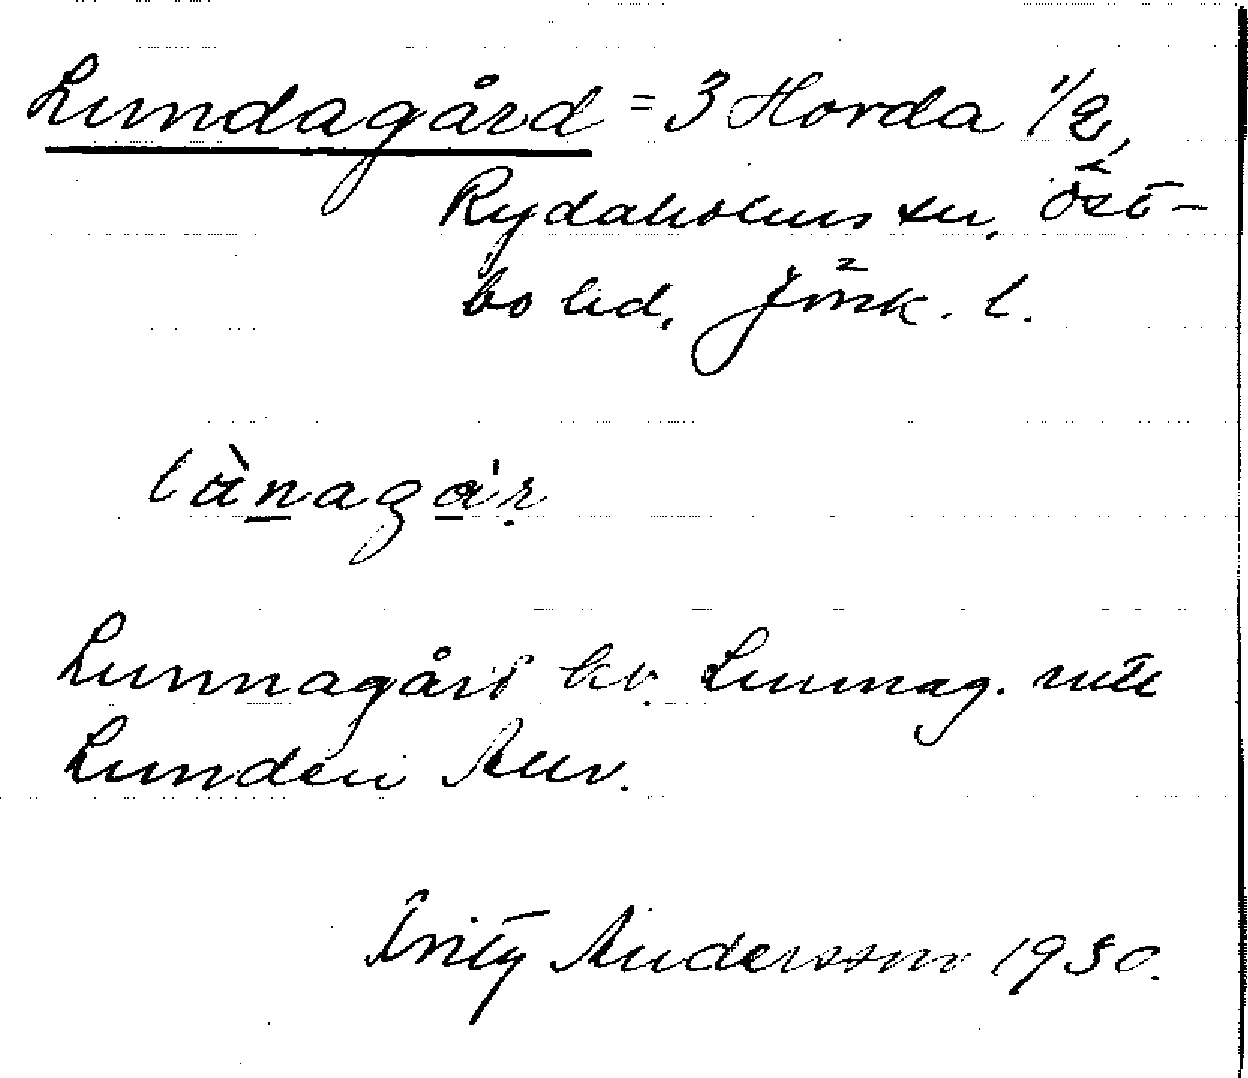 Lundagård = 3 Horda 1/2,
Rydaholms sn, Öst-
bo hd, Jönk. l.
lànagár
Lunnagård hv. Lunnag. inte
Lunden Auv.
Fritz Andersson 1930.